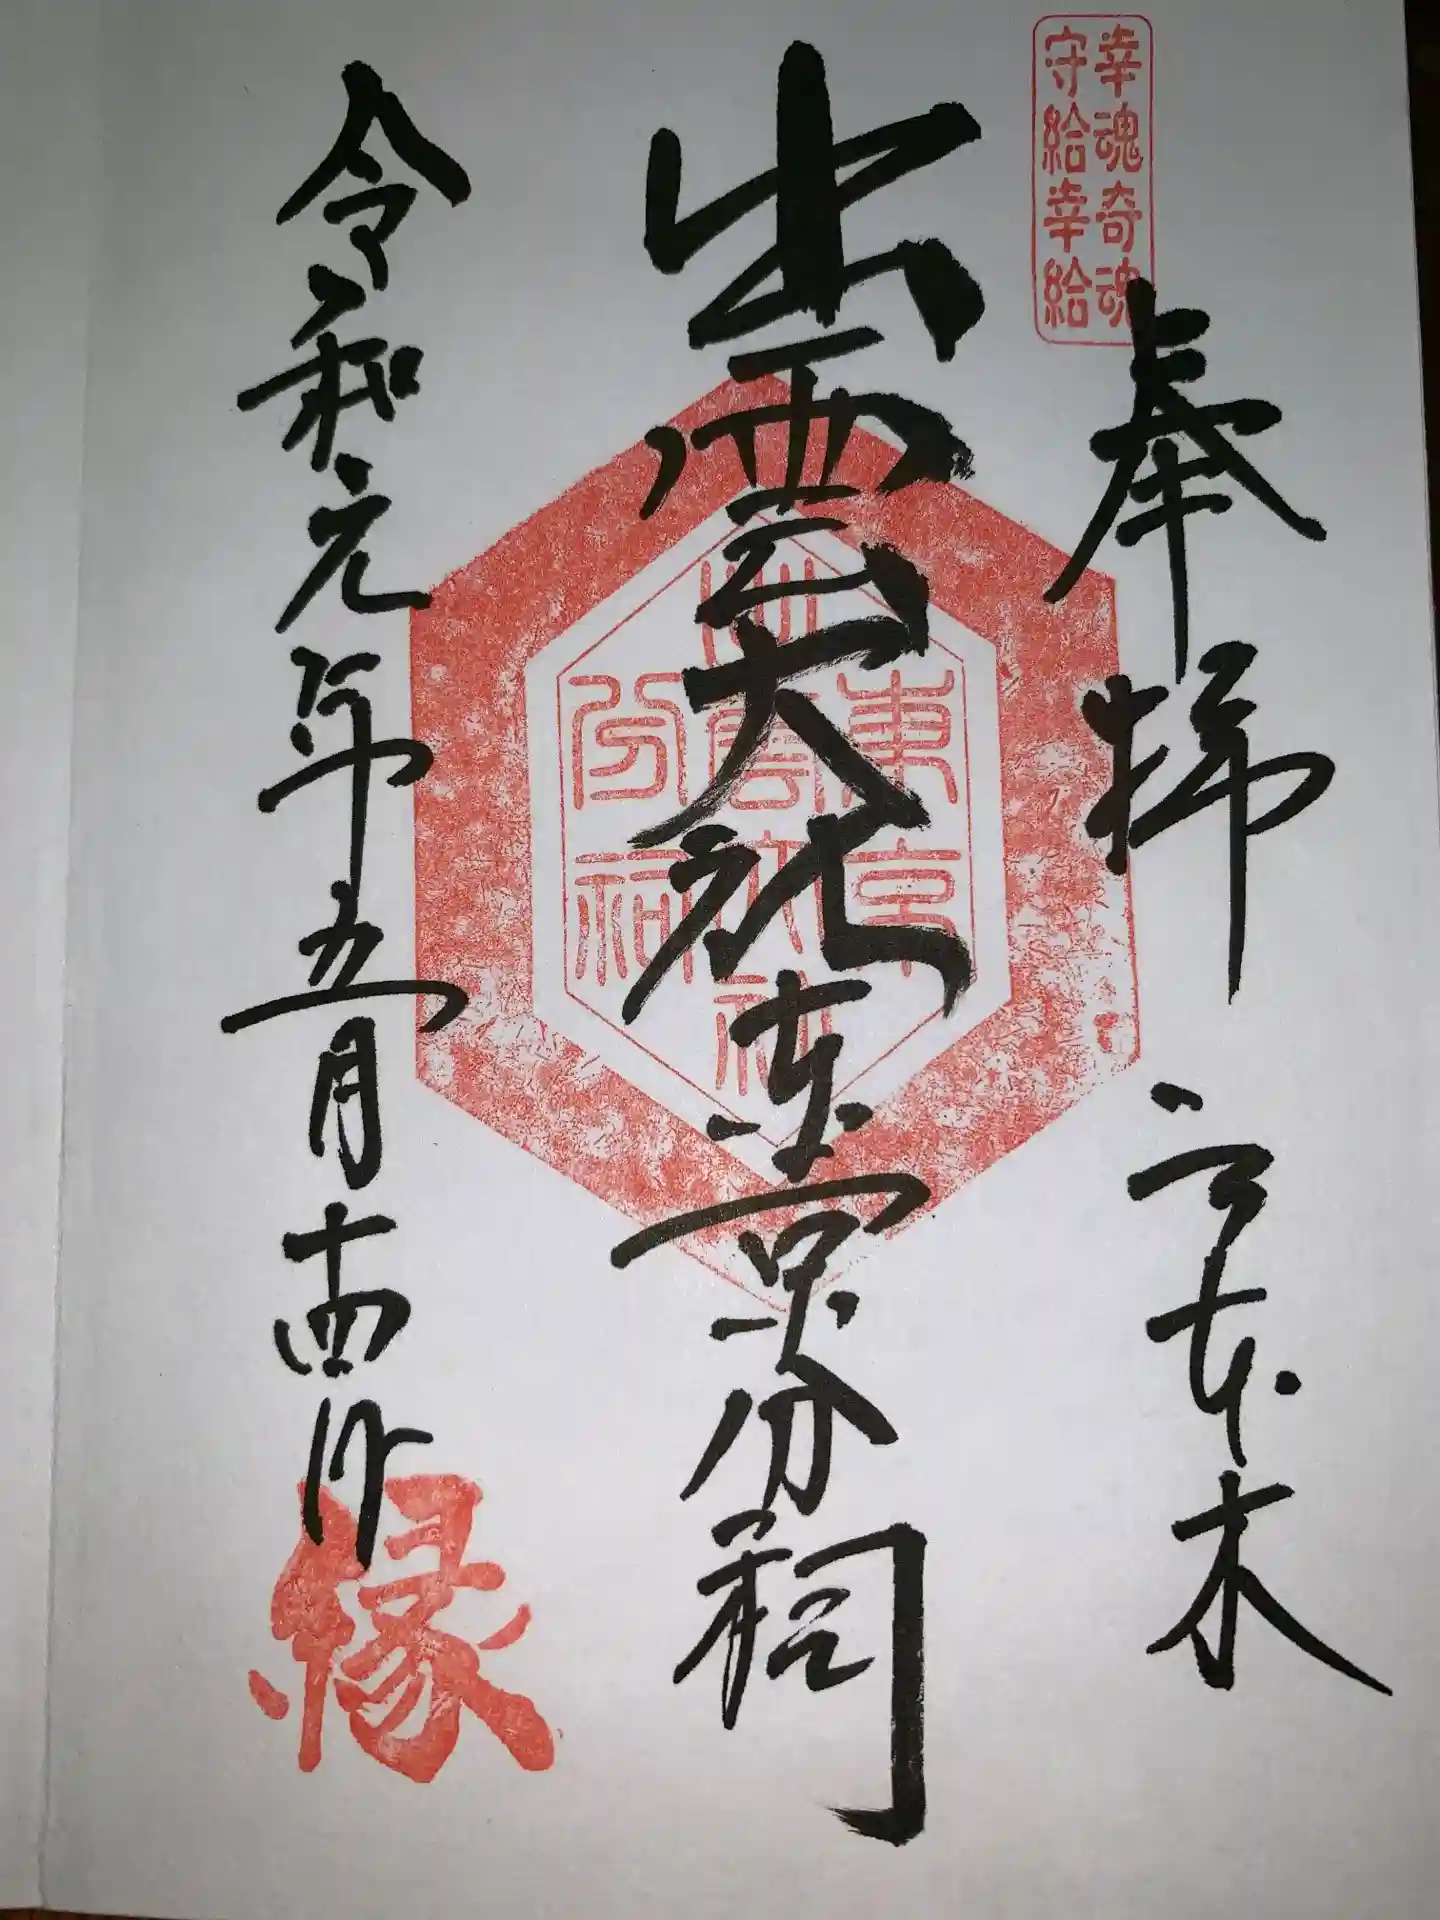 幸魂奇魂
守給幸給
奉拝 六本木
出雲大社東京分祠
東京
出雲大社
分祠
令和元年五月十四日
縁